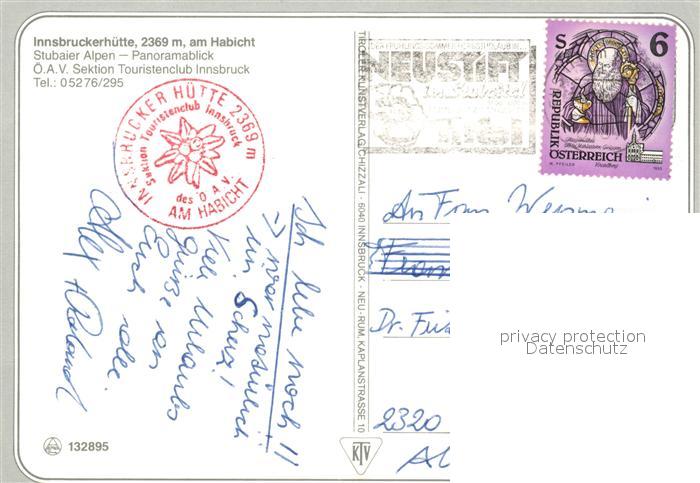 Innsbruckerhütte, 2369 m, am Habicht
Stubaier Alpen — Panoramablick
Ö.A.V. Sektion Touristenclub Innsbruck
Tel.: 05276/295
INNSBRUCKER HÜTTE 2369 m
Sektion Touristenclub Innsbruck
des Ö.A.V.
AM HABICHT
Ich lebe noch!!
→ war natürlich
ein Scherz!
Viele Urlaubs
grüße von
Euch
Roland
132895
TIROLER KUNSTVERLAG CHIZZALI · 6040 INNSBRUCK - NEU-RUM, KAPLANSTRASSE 10
KTV
NEUSTIFT
im Stubaital
TIROL
S 6
REPUBLIK
ÖSTERREICH
W. PFEILER
1993
An Frau
Dr.
2320
privacy protection
Datenschutz